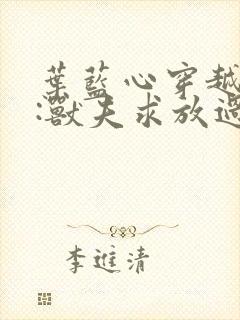 葉藍心穿越
:獸夫求放過
李進清